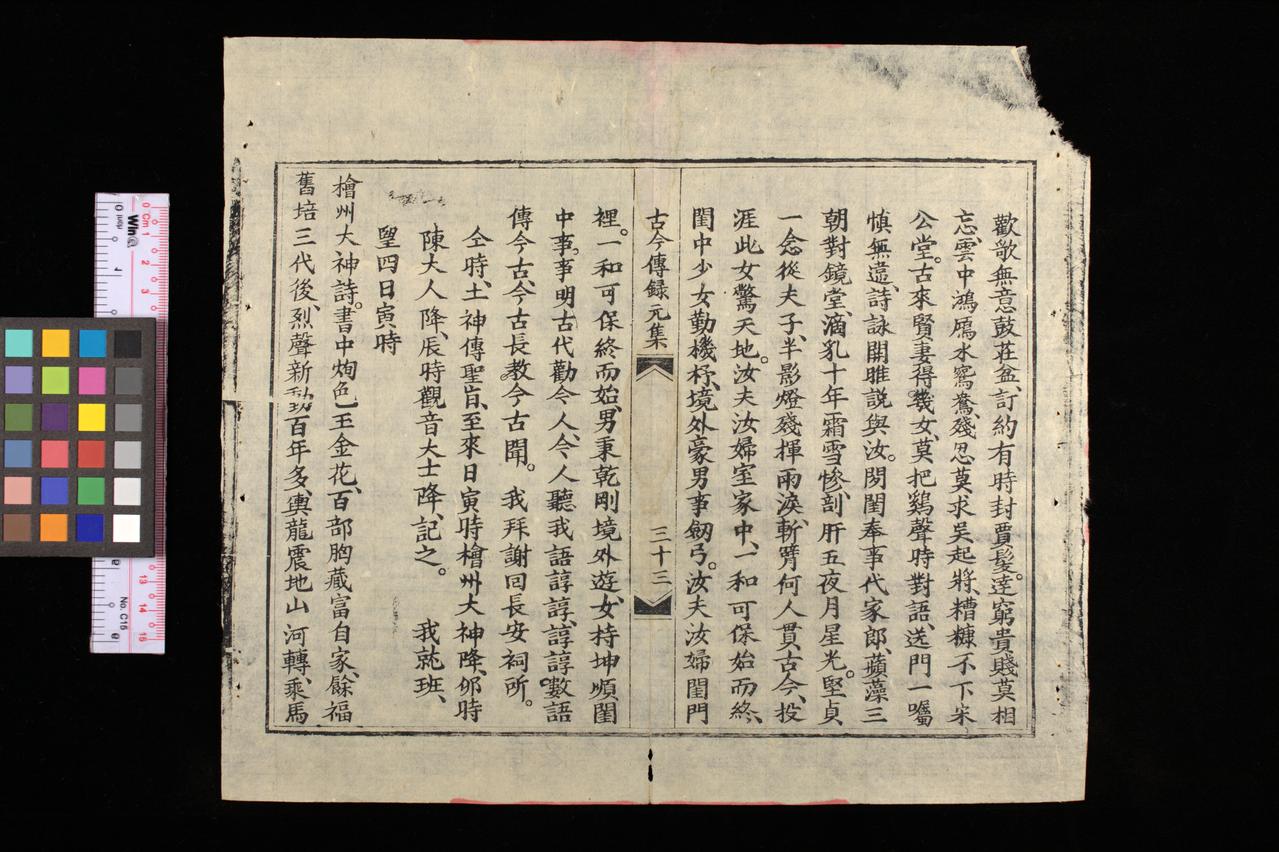 歡歌無意鼓莊盆、訂約有時封賈髮。達窮貴賤莫相
忘、雲中鴻鴈水鴛鴦、殘忍莫求吳起將、糟糠不下宋
公堂。古來賢妻得幾女、莫把鷄聲時對語、送門一囑
慎無違、詩詠関雎説與汝。閔閨奉事代家郎、蘋藻三
朝對鏡堂、滴乳十年霜雪慘、剖肝五夜月星光。堅貞
一念從夫子、半影燈殘揮雨淚、斬臂何人貫古今、投
涯此女驚天地。汝夫汝婦室家中、一和可保始而終、
閨中少女勤機杼、境外豪男事劔弓。汝夫汝婦閨門
古今傳録元集
三十三
裡。一和可保終而始、男秉乾剛境外遊、女持坤順閨
中事。事明古代勸今人、今人聽我語諄諄、諄諄數語
傳今古、今古長教今古聞。我拜謝回長安祠所。
仝時、土神傳聖旨、至來日寅時檜州大神降、夘時
陳大人降、辰時觀音大士降、記之。 我就班、
望四日寅時
檜州大神詩。書中炯色玉金花、百部胸藏富自家、餘福
舊培三代後、烈聲新勒百年多、輿龍震地山河轉、乘馬
No. C15
Cm 1 2 3 4 13 14 15
0 inch